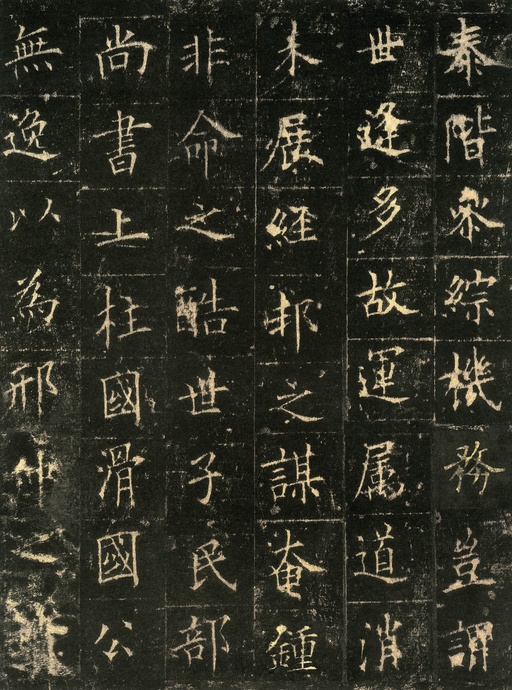 泰階參綜機務豈謂
世逢多故運属道消
未展經邦之謀奄鍾
非命之酷世子民部
尚書上柱國滑國公
無逸以為邢山之